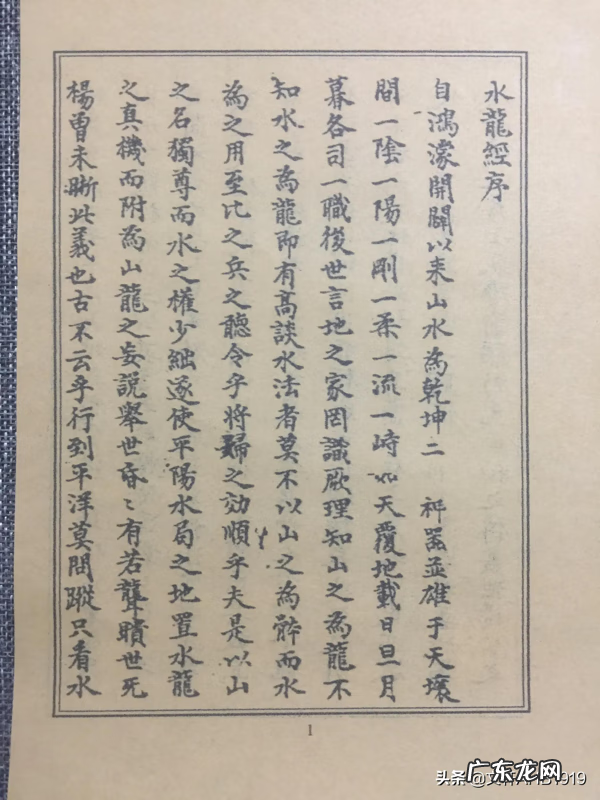 水龍經序
自鴻濛開闢以来山水為乾坤二 神器並雄于天壤
間一陰一陽一剛一柔一流一峙如天覆地載日旦月
暮各司一職後世言地之家罔識厥理知山之為龍不
知水之為龍即有高談水法者莫不以山之為體而水
為之用至比之兵之聽令乎將婦之効順乎夫是以山
之名獨尊而水之權少絀遂使平陽水局之地置水龍
之真機而附為山龍之妄說舉世昏〻有若聾瞶世死
楊曾未晰此義也古不云乎行到平洋莫問蹤只看水
1
广东龙网
头条
1919